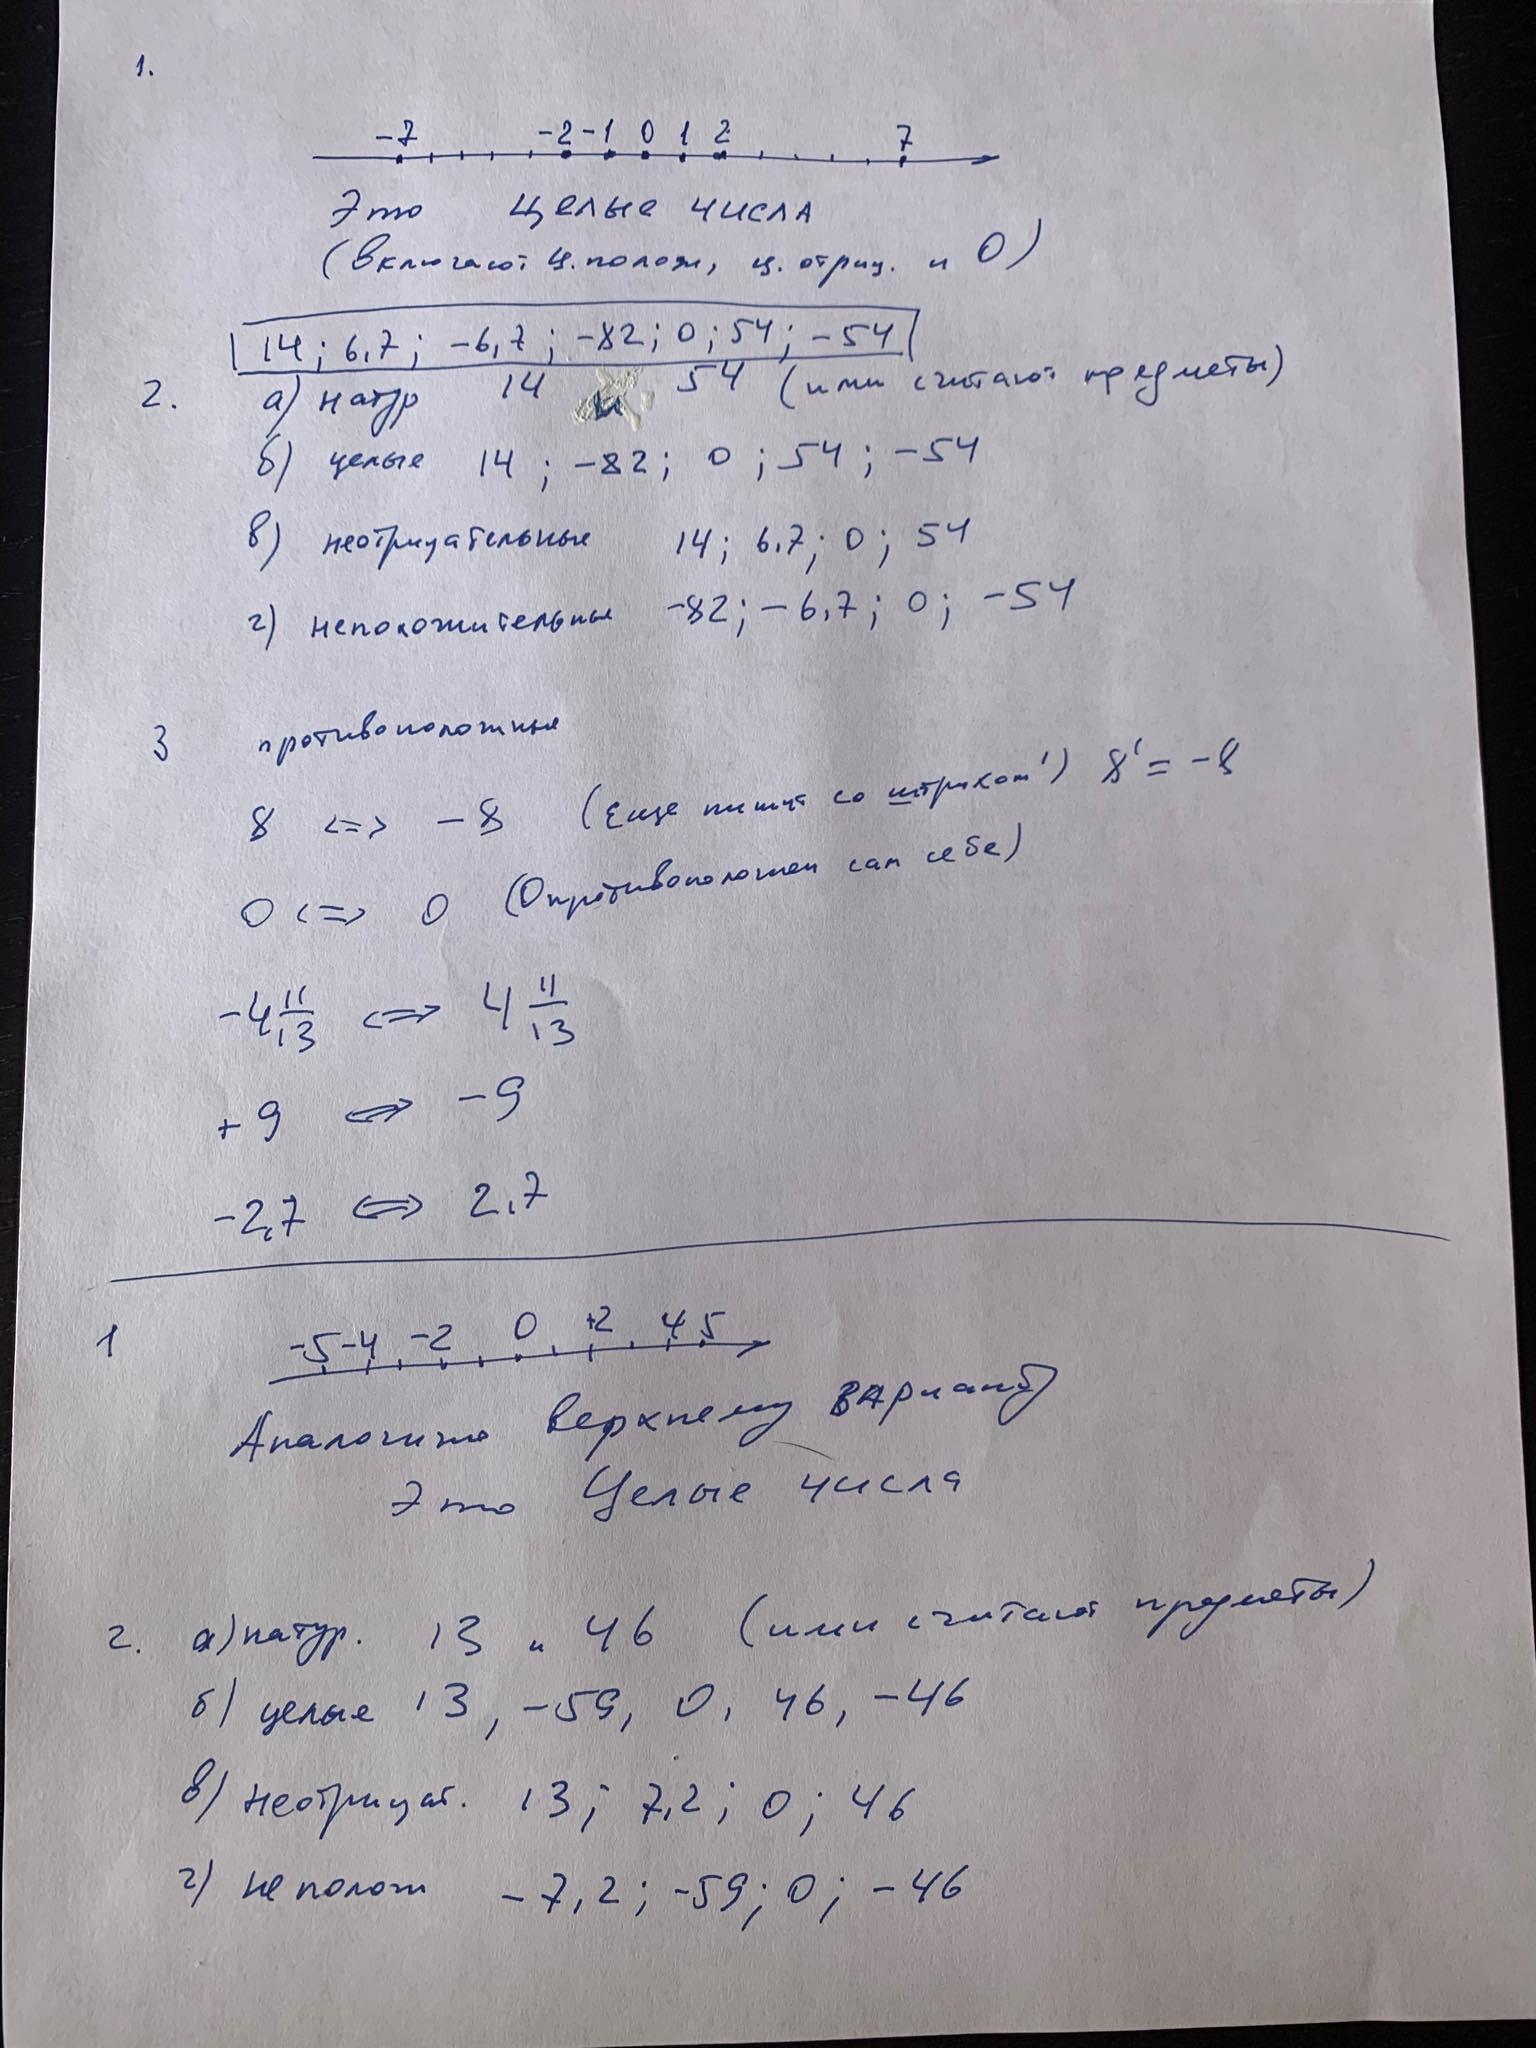 1.
-7 -2 -1 0 1 2 7
Это целые числа
(Включают ц. полож, ц. отриц. и 0)
14; 6,7; -6,7; -82; 0; 54; -54
2. а) натур 14 и 54 (ими считают предметы)
б) целые 14; -82; 0; 54; -54
в) неотрицательные 14; 6,7; 0; 54
г) неположительные -82; -6,7; 0; -54
3 противоположные
8 <=> -8 (Еще пишут со штрихом ') 8' = -8
0 <=> 0 (0 противоположен сам себе)
-4 11/13 <=> 4 11/13
+9 <=> -9
-2,7 <=> 2,7
1 -5 -4 -2 0 +2 4 5
Аналогично верхнему варианту
Это Целые числа
2. а) натур. 13 и 46 (ими считают предметы)
б) целые 13, -59, 0, 46, -46
в) неотрицат. 13; 7,2; 0; 46
г) неполож -7,2; -59; 0; -46